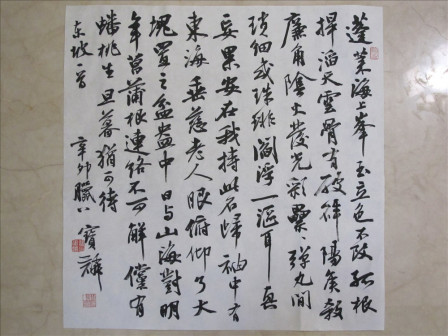 蓬莱海上峯玉立色不改孤根
捍滔天雲骨有破碎陽侯殺
廉角陰火發光彩纍纍彈丸間
瑣細成珠琲閻浮一漚耳真
妄果安在我持此石歸袖中有
東海垂慈老人眼俯仰了大
塊置之盆盎中日與山海對明
年菖蒲根連絡不可解儻有
蟠桃生旦暮猶可待
東坡一首
辛卯臘八寶麟